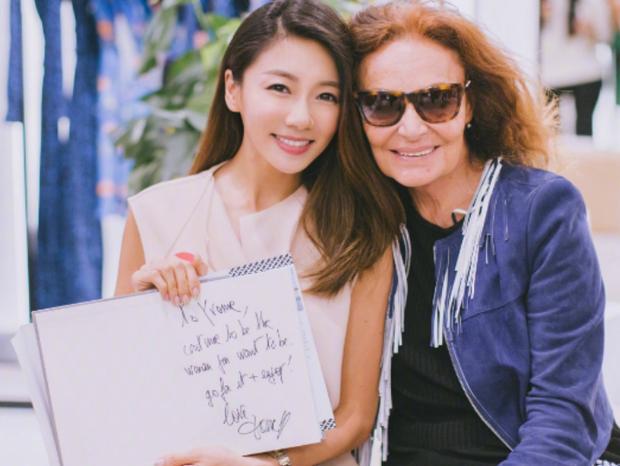 To Yvonne,
continue to be the
woman you want to be.
go for it + enjoy!
love